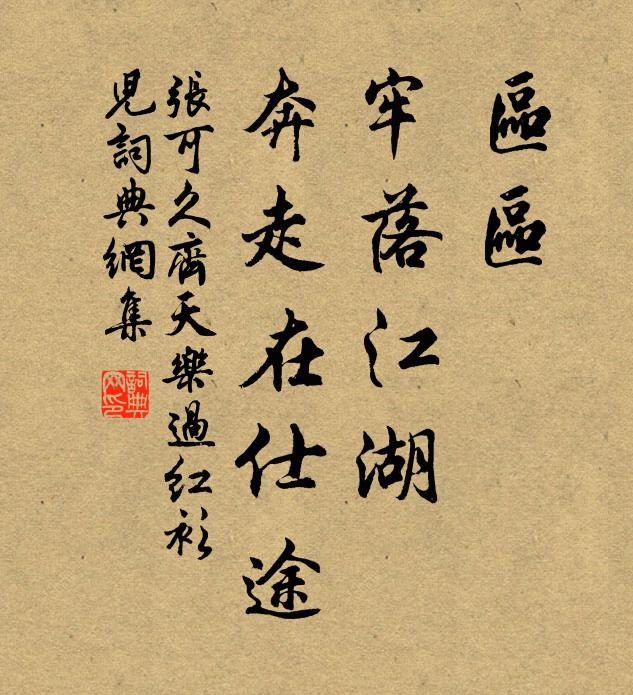 區區
牢落江湖
奔走在仕途
張可久齊天樂過紅衫
兒詞典網集
詞典
网印